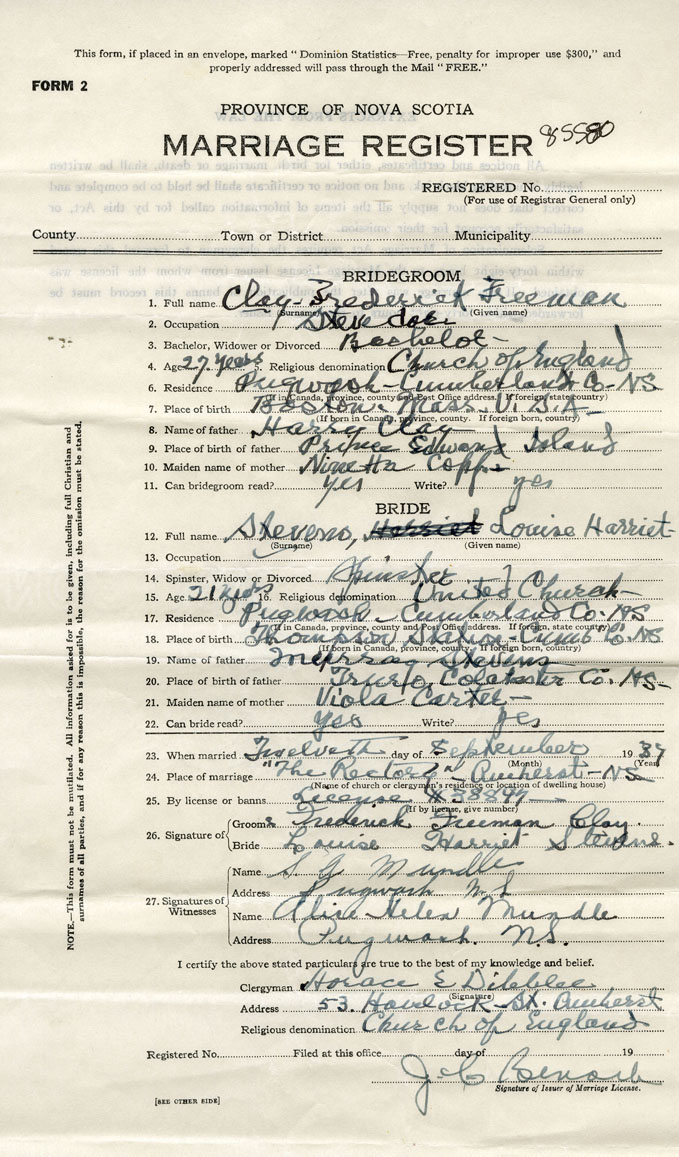 This form, if placed in an envelope, marked "Dominion Statistics—Free, penalty for improper use $300," and
properly addressed will pass through the Mail "FREE."
FORM 2
PROVINCE OF NOVA SCOTIA
MARRIAGE REGISTER 85580
REGISTERED No.
(For use of Registrar General only)
County Town or District Municipality
BRIDEGROOM
1. Full name Clay-Frederick Freeman
(Surname) (Given name)
2. Occupation
3. Bachelor, Widower or Divorced Bachelor-
4. Age 27 years 5. Religious denomination Church of England
6. Residence Pugwash-Cumberland Co-NS
(If in Canada, province, county and Post Office address. If foreign, state country)
7. Place of birth Boston-Mass-U.S.A-
(If born in Canada, province, county. If foreign born, country)
8. Name of father Harry Clay-
9. Place of birth of father Prince Edward Island
10. Maiden name of mother Copp-
11. Can bridegroom read? yes Write? yes
BRIDE
12. Full name Stevens, Harriet Louise Harriet-
(Surname) (Given name)
13. Occupation
14. Spinster, Widow or Divorced Spinster
15. Age 21 years 16. Religious denomination United Church-
17. Residence Pugwash-Cumberland Co. NS
(If in Canada, province, county and Post Office address. If foreign, state county)
18. Place of birth Thompson Station-Cumb Co. NS
(If born in Canada, province, county. If foreign born, country)
19. Name of father Murray Stevens
20. Place of birth of father Truro, Colchester Co. NS-
21. Maiden name of mother Viola Carter-
22. Can bride read? yes Write? yes
23. When married Twelveth day of September 19 37
(Month) (Year)
24. Place of marriage The Rectory-Amherst-NS
(Name of church or clergyman's residence or location of dwelling house)
25. By license or banns License
(If by license, give number)
26. Signature of Groom Frederick Freeman Clay.
Bride Louise Harriet Stevens.
27. Signatures of Witnesses
Name Mundle
Address Pugwash N.S
Name Alice Helen Mundle
Address Pugwash. N.S.
I certify the above stated particulars are true to the best of my knowledge and belief.
Clergyman Horace E Dibblee
(Signature)
Address 53. Havelock-St. Amherst
Religious denomination Church of England
Registered No. Filed at this office day of 19
Signature of Issuer of Marriage License.
[SEE OTHER SIDE]
NOTE.—This form must not be mutilated. All information asked for is to be given, including full Christian and
surnames of all parties, and if for any reason this is impossible, the reason for the omission must be stated.